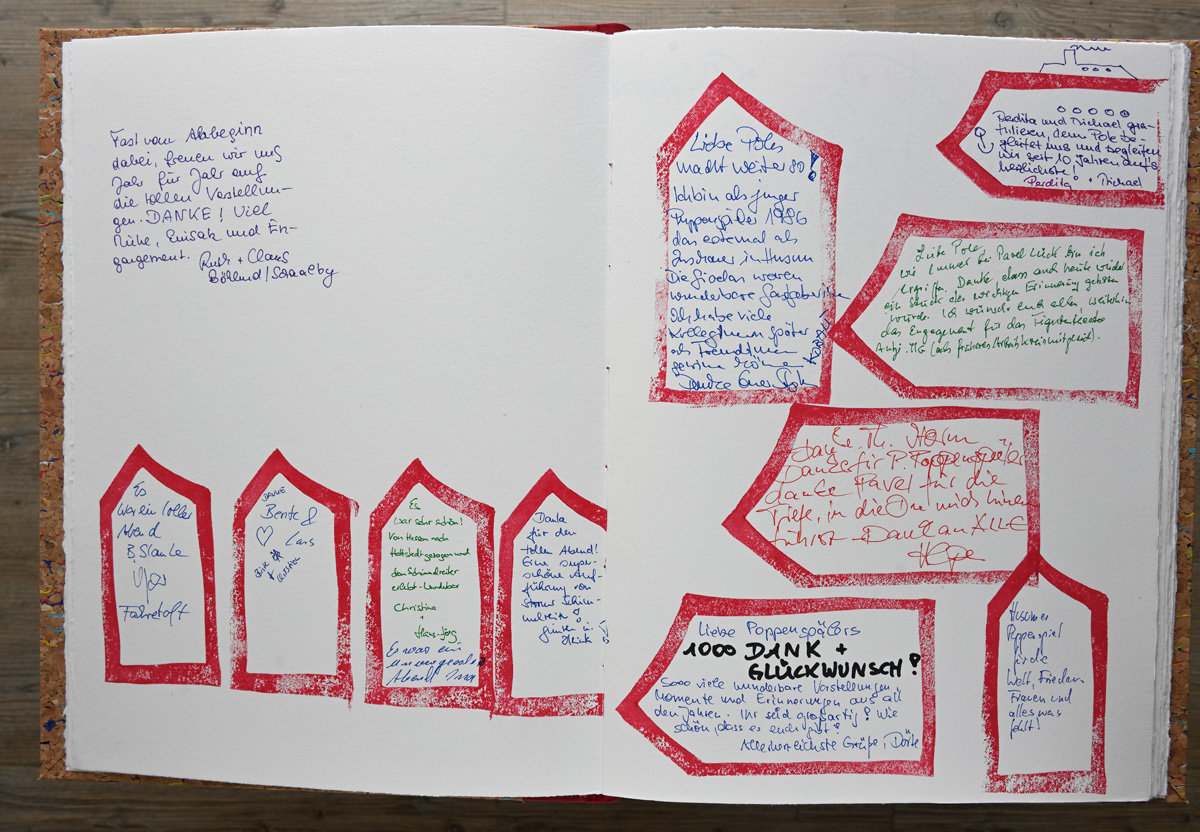 Fast vom Anbeginn
dabei, freuen wir uns
Jahr für Jahr auf
die tollen Vorstellun-
gen. DANKE! Viel
Mühe, Einsatz und En-
gagement. Ruth + Claus
Böklund/Schaalby
Es
war ein toller
Abend
Fahretoft
DANKE
Bente &
Lars
Es
war sehr schön!
Von Husum nach
Hattstedt gezogen und
den Schimmelreiter
erlebt - wunderbar
Christine
+
Hans-Jörg
Es war ein
Abend
Danke
für den
tollen Abend!
Eine super-
schöne Auf-
führung von
Storms Schim-
melreiter!
Liebe Poles
macht weiter so!
Ich bin als junger
Puppenspieler 1986
das erste mal als
Zuschauer in Husum
Die waren
wunderbare Gastgeber
Ich habe viele
KollegInnen später
als FreundInnen
gewinnen können
Perdita und Michael gra-
tulieren, denn Pole be-
gleitet uns und begleiten
wir seit 10 Jahren aufs
herzlichste!
Perdita + Michael
Liebe Pole,
wie immer bei Pavel Stück bin ich
ergriffen. Danke, dass auch heute wieder
ein Stück der wichtigen Erinnerung gehoben
wurde. Ich wünsche euch allen weiterhin
das Engagement für das Figurentheater
Antj. MG (als früheres Arbeitskreismitglied).
Danke für P. Poppenspäler
danke Pavel für die
Tiefe, in die Du mich hinein
führst - Dank an ALLE
Helga
Liebe Poppenspälers
1000 DANK +
GLÜCKWUNSCH!
Sooo viele wunderbare Vorstellungen,
Momente und Erinnerungen aus all
den Jahren. Ihr seid großartig! Wie
schön, dass es euch gibt!
Allerherzlichste Grüße, Dörte
Husumer
Puppenspiel
für die
Welt, Frieden
Frauen und
alles was
fehlt!